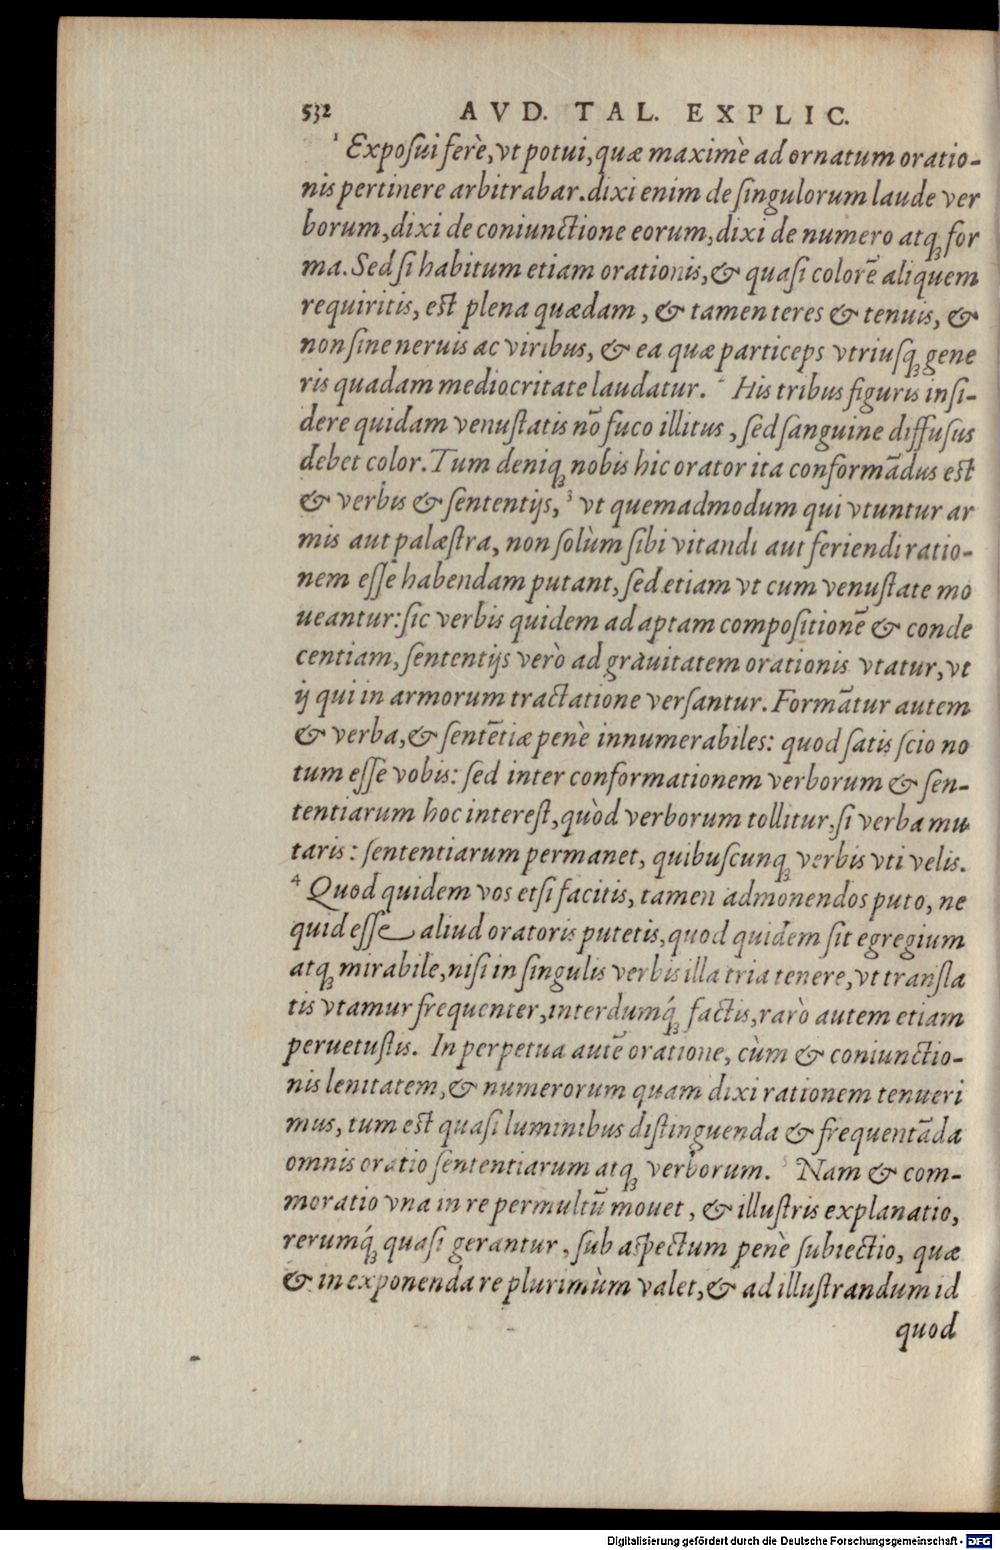 532 AVD. TAL. EXPLIC.
¹ Exposui ferè, vt potui, quæ maximè ad ornatum oratio-
nis pertinere arbitrabar. dixi enim de singulorum laude ver
borum, dixi de coniunctione eorum, dixi de numero atq; for
ma. Sed si habitum etiam orationis, & quasi colorē aliquem
requiritis, est plena quædam, & tamen teres & tenuis, &
non sine neruis ac viribus, & ea quæ particeps vtriusq; gene
ris quadam mediocritate laudatur. ² His tribus figuris insi-
dere quidam venustatis nō fuco illitus, sed sanguine diffusus
debet color. Tum deniq; nobis hic orator ita conformādus est
& verbis & sententijs, ³ vt quemadmodum qui vtuntur ar
mis aut palæstra, non solùm sibi vitandi aut feriendi ratio-
nem esse habendam putant, sed etiam vt cum venustate mo
ueantur: sic verbis quidem ad aptam compositionē & conde
centiam, sententijs verò ad grauitatem orationis vtatur, vt
ij qui in armorum tractatione versantur. Formātur autem
& verba, & sentētiæ penè innumerabiles: quod satis scio no
tum esse vobis: sed inter conformationem verborum & sen-
tentiarum hoc interest, quòd verborum tollitur, si verba mu
taris: sententiarum permanet, quibuscunq; verbis vti velis.
⁴ Quod quidem vos etsi facitis, tamen admonendos puto, ne
quid esse aliud oratoris putetis, quod quidem sit egregium
atq; mirabile, nisi in singulis verbis illa tria tenere, vt transla
tis vtamur frequenter, interdumq́; factis, rarò autem etiam
peruetustis. In perpetua autē oratione, cùm & coniunctio-
nis lenitatem, & numerorum quam dixi rationem tenueri
mus, tum est quasi luminibus distinguenda & frequentāda
omnis oratio sententiarum atq; verborum. ⁵ Nam & com-
moratio vna in re permultū mouet, & illustris explanatio,
rerumq́; quasi gerantur, sub aspectum penè subiectio, quæ
& in exponenda re plurimùm valet, & ad illustrandum id
quod
Digitalisierung gefördert durch die Deutsche Forschungsgemeinschaft - DFG